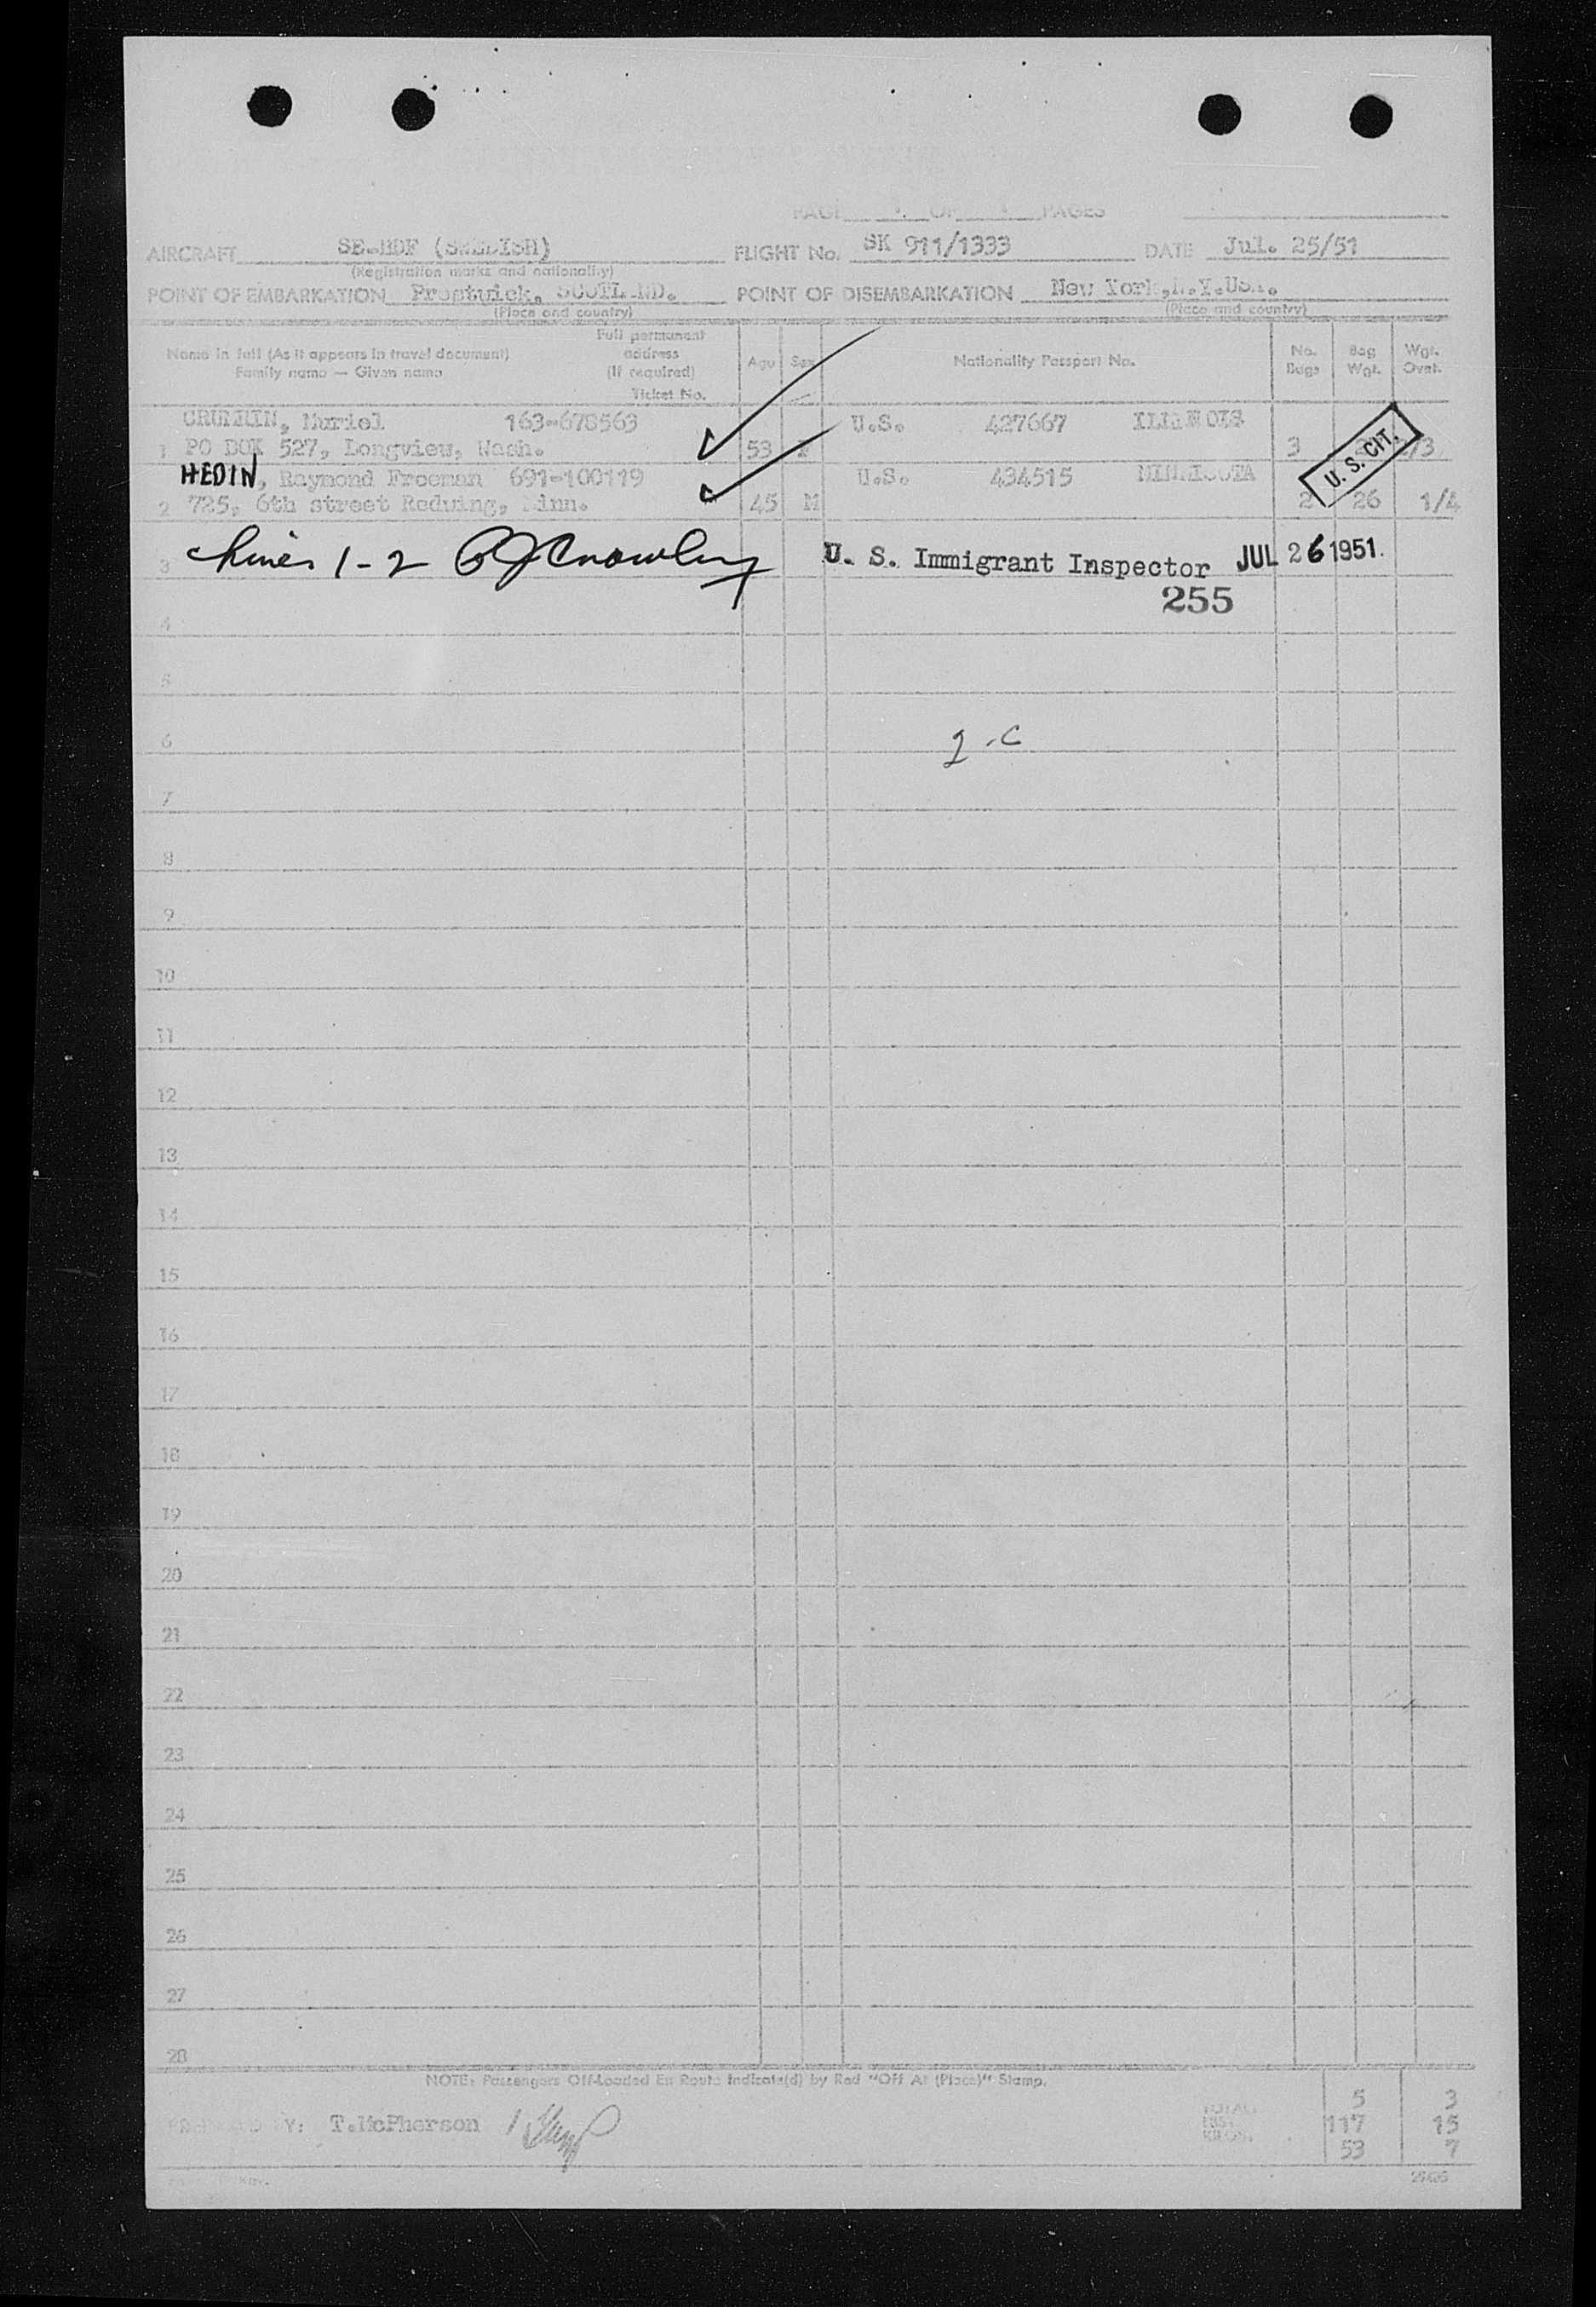 PAGE OF PAGES
AIRCRAFT SE-BDF (SWEDISH) FLIGHT No. SK 911/1333 DATE Jul. 25/51
(Registration marks and nationality)
POINT OF EMBARKATION Prestwick, SCOTLAND. POINT OF DISEMBARKATION New York,N.Y.USA.
(Place and country) (Place and country)
Name in full (As it appears in travel document) Family name — Given name Full permanent address (If required) Ticket No. Age Sex Nationality Passport No. No. Bags Bag Wgt. Wgt. Ovct.
Muriel 163-678563 U.S. 427667 ILLINOIS
1 PO BOX 527, Longview, Wash. 53 F 3 2/3
HEDIN, Raymond Freeman 691-100119 U.S. 434515 MINNISOTA
2 725, 6th street Redwing, Minn. 45 M 2 26 1/4
U. S. CIT.
3 Lines 1-2 U. S. Immigrant Inspector JUL 26 1951.
255
4
5
6
7
8
9
10
11
12
13
14
15
16
17
18
19
20
21
22
23
24
25
26
27
28
NOTE: Passengers Off-Loaded En Route Indicate(d) by Red "Off At (Place)" Stamp.
TOTAL: 5 3
LBS. 117 15
PREPARED BY: T.McPherson KILOS. 53 7